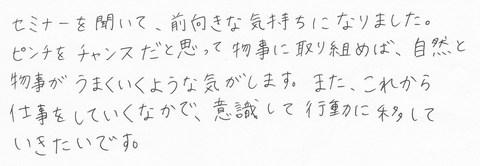 セミナーを聞いて、前向きな気持ちになりました。
ピンチをチャンスだと思って物事に取り組めば、自然と
物事がうまくいくような気がします。また、これから
仕事をしていくなかで、意識して行動に移して
いきたいです。